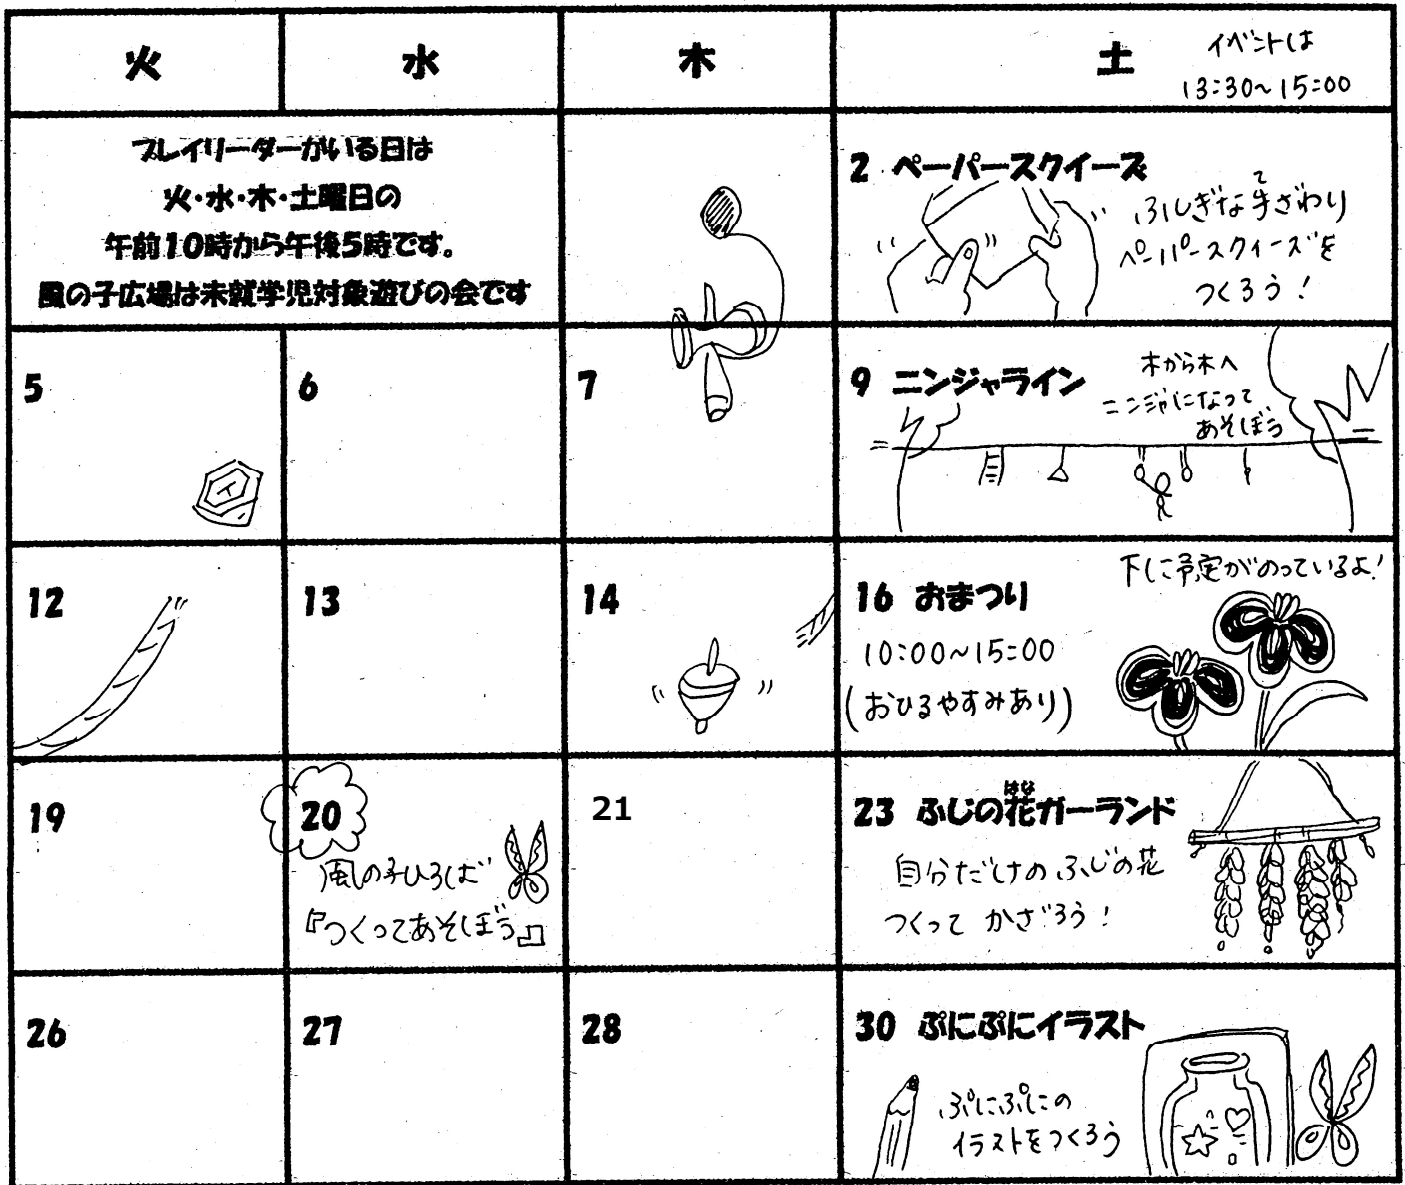 火
水
木
土
イベントは
13:30~15:00
プレイリーダーがいる日は
火・水・木・土曜日の
午前10時から午後5時です。
風の子広場は未就学児対象遊びの会です
2 ペーパースクイーズ
ふしぎな手ざわり
て
ペーパースクイーズを
つくろう!
5
6
7
9 ニンジャライン
木から木へ
ニンジャになって
あそぼう
12
13
14
16 おまつり
下に予定がのっているよ!
10:00~15:00
(おひるやすみあり)
19
20
風の子ひろば
『つくってあそぼう』
21
23 ふじの花ガーランド
はな
自分だけのふじの花
つくって かざろう!
26
27
28
30 ぷにぷにイラスト
ぷにぷにの
イラストをつくろう